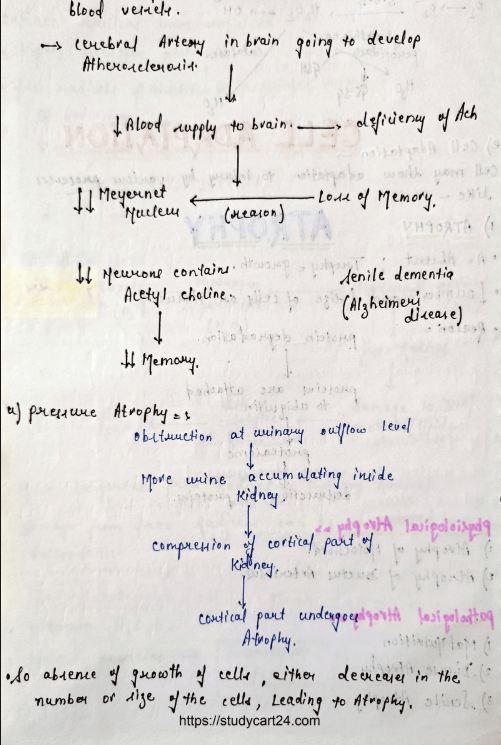 blood vessels.
→ cerebral Artery in brain going to develop
Atherosclerosis.
↓ Blood supply to brain. → deficiency of Ach
↓↓ Meyernet Nucleus ← (reason) Loss of Memory.
↓↓ Neurons contains Acetyl choline
senile dementia
(Alzheimers disease)
↓↓ Memory.
4) pressure Atrophy =>
obstruction at urinary outflow level
More urine accumulating inside
kidney.
compression of cortical part of
kidney.
cortical part undergoes
Atrophy.
• So absence of growth of cells, either decreases in the
number or size of the cells, Leading to Atrophy.
https://studycart24.com